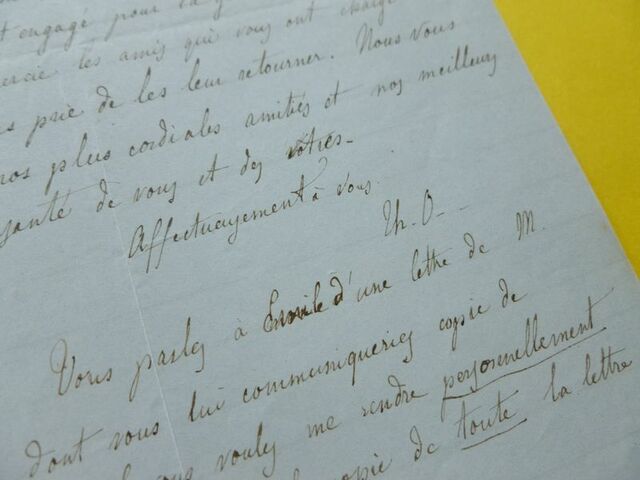 t engagé pour la
ercie les amis qui vous ont chargé
s prie de les leur retourner. Nous vous
nos plus cordiales amitiés et nos meilleurs
santé de vous et des vôtres.
Affectueusement à vous.
Th. O.
Vous parlez à Emile d'une lettre de M.
dont vous lui communiqueriez copie de
vous voulez me rendre personnellement
copie de toute la lettre